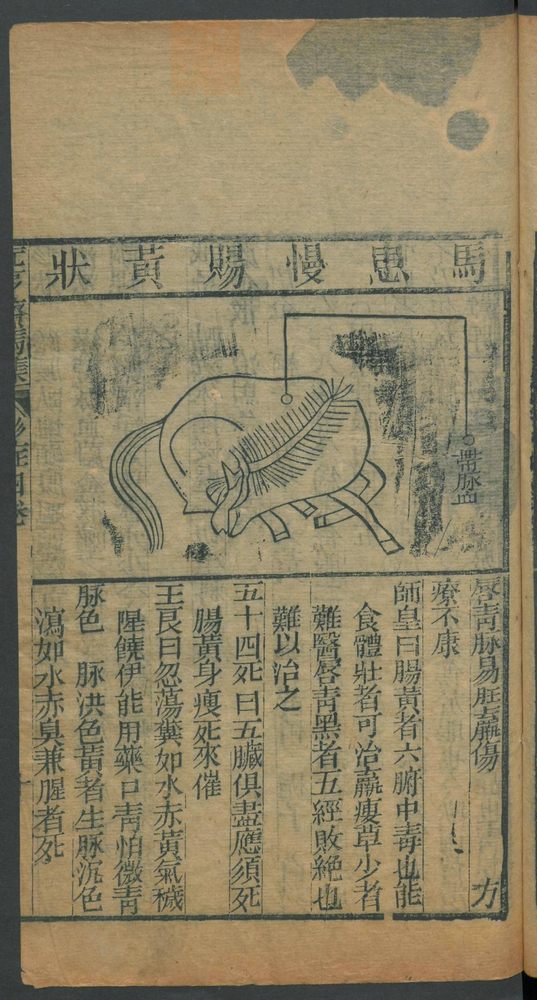 馬患慢腸黃狀
帶脉血
唇青脉易胜羸傷
療不康　方
師皇曰腸黃者六腑中毒也能
食體壯者可治羸瘦草少者
難醫唇青黑者五經敗絕也
難以治之
五十四死曰五臟俱盡應須死
腸黃身瘦死來催
王良曰忽蕩糞如水赤黃氣穢
腥饒伊能用藥口青怕微青
脉色　脉洪色黃者生脉沉色
瀉如水赤臭兼腥者死